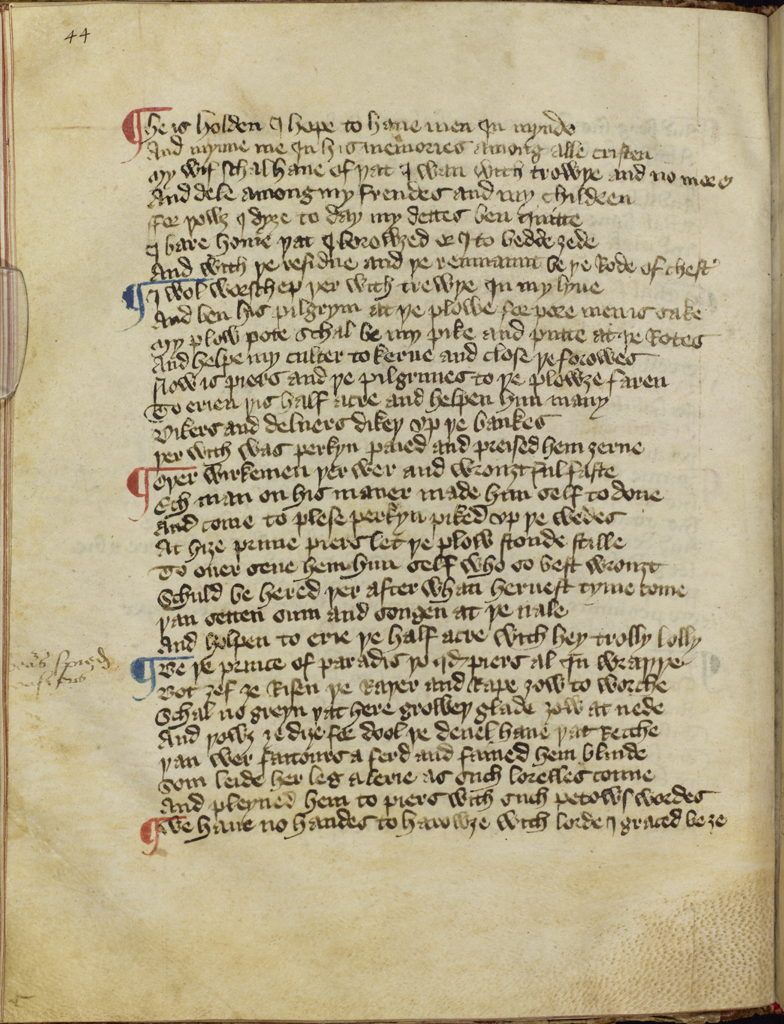 44
he is holden I hope to haue men In mynde
And mynne me In his memories among alle cristen
My wif schal haue of þat I wan with trowþe and no more
And dele among my frendes and my children
For þowȝ I dyȝe to day my dettes ben quitte
I bare home þat I borowȝed er I to bedde ȝede
And with þe residue and þe remnaunt be þe Rode of chest
I wol worschep þer with trewþe In my lyue
And ben his pilgrym at þe plowe for pore menis sake
My plow pote schal be my pike and putte at þe Rotes
And helpe my culter to kerue and close þe forowes
Now is piers and þe pilgrimes to þe plowȝe faren
To erien þis half acre and helpen him many
Dikers and deluers dikeþ vp þe bankes
Þer with was perkyn paied and preised hem ȝerne
Oþer wirkemen þer wer and wrouȝt ful faste
Ech man on his maner made him self to done
And some to plese perkyn piked vp þe wedes
At hiȝe prime piers let þe plow stonde stille
To ouer sene hem him self who so best wrouȝt
Schuld be hered þer after whan heruest tyme come
Þan setten sum and songen at þe nale
And holpen to erie þe half acre with hey trolly lolly
Be þe prince of paradis þo qd piers al In wraþþe
Bot ȝef ȝe Risen þe Raþer and Rape ȝow to worche
Schal no greyn þat here groweþ glade ȝow at nede
And þowȝ ȝe dyȝe for dool þe deuel haue þat Recche
Þan wer faitours a ferd and fained hem blinde
Som leide her leg a lerie as such lorelles conne
And pleyned hem to piers with such petows wordes
We haue no handes to harowȝe with lorde I graced be ȝe